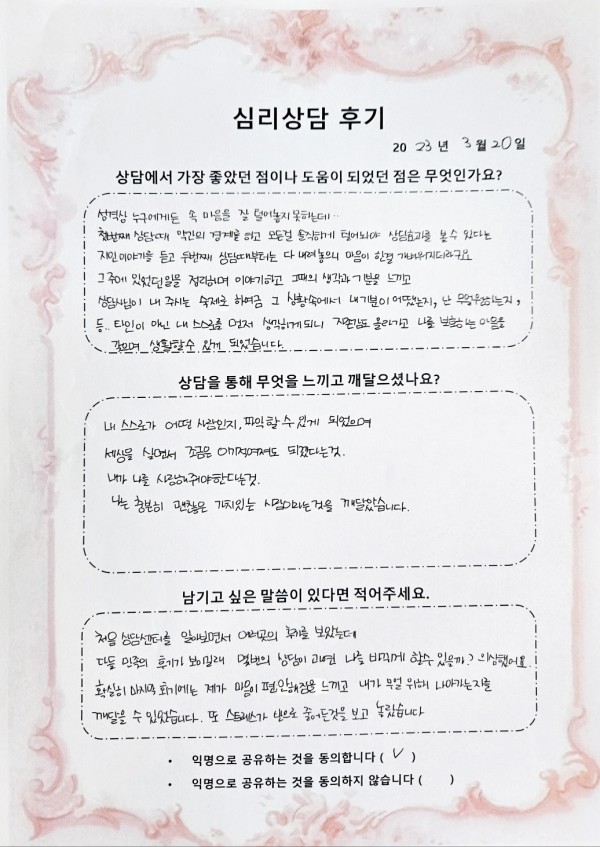 심리상담 후기
2023년 3월 20일
상담에서 가장 좋았던 점이나 도움이 되었던 점은 무엇인가요?
성격상 누구에게든 속 마음을 잘 털어놓지 못하는데..
첫번째 상담때 약간의 경계를 하고 모든걸 솔직하게 털어놔야 상담효과를 볼 수 있다는
지인이야기를 듣고 두번째 상담때부터는 다 내려놓으니 마음이 한결 가벼워지더라구요
그 주에 있었던 일을 정리하며 이야기하고 그때의 생각과 기분을 느끼고
상담사님이 내 주시는 숙제로 하여금 그 상황속에서 내기분이 어땠는지, 난
등.. 타인이 아닌 내 스스로를 먼저 생각하게되니 자존감도 올라가고 나를 보호하는 마음을
갖으며 생활할수 있게 되었습니다.
상담을 통해 무엇을 느끼고 깨달으셨나요?
내 스스로가 어떤 사람인지, 파악할 수 있게 되었으며
세상을 살면서 조금은 이기적여져도 되겠다는것.
내가 나를 사랑해줘야한다는것.
나는 충분히 괜찮은 가치있는 사람이라는것을 깨달았습니다.
남기고 싶은 말씀이 있다면 적어주세요.
처음 상담센터를 알아보면서 여러곳의 후기를 보았는데
다들 만족의 후기가 보이길래 몇번의 상담이 과연 나를 바뀌게 할수 있을까? 의심했어요.
확실히 마지막 회기에는 제가 마음이 편안해짐을 느끼고 내가 무얼 위해 나아가는지를
깨달을 수 있었습니다. 또 스트레스가 반으로 줄어든것을 보고 놀랐습니다
• 익명으로 공유하는 것을 동의합니다 ( ✓ )
• 익명으로 공유하는 것을 동의하지 않습니다 ( )